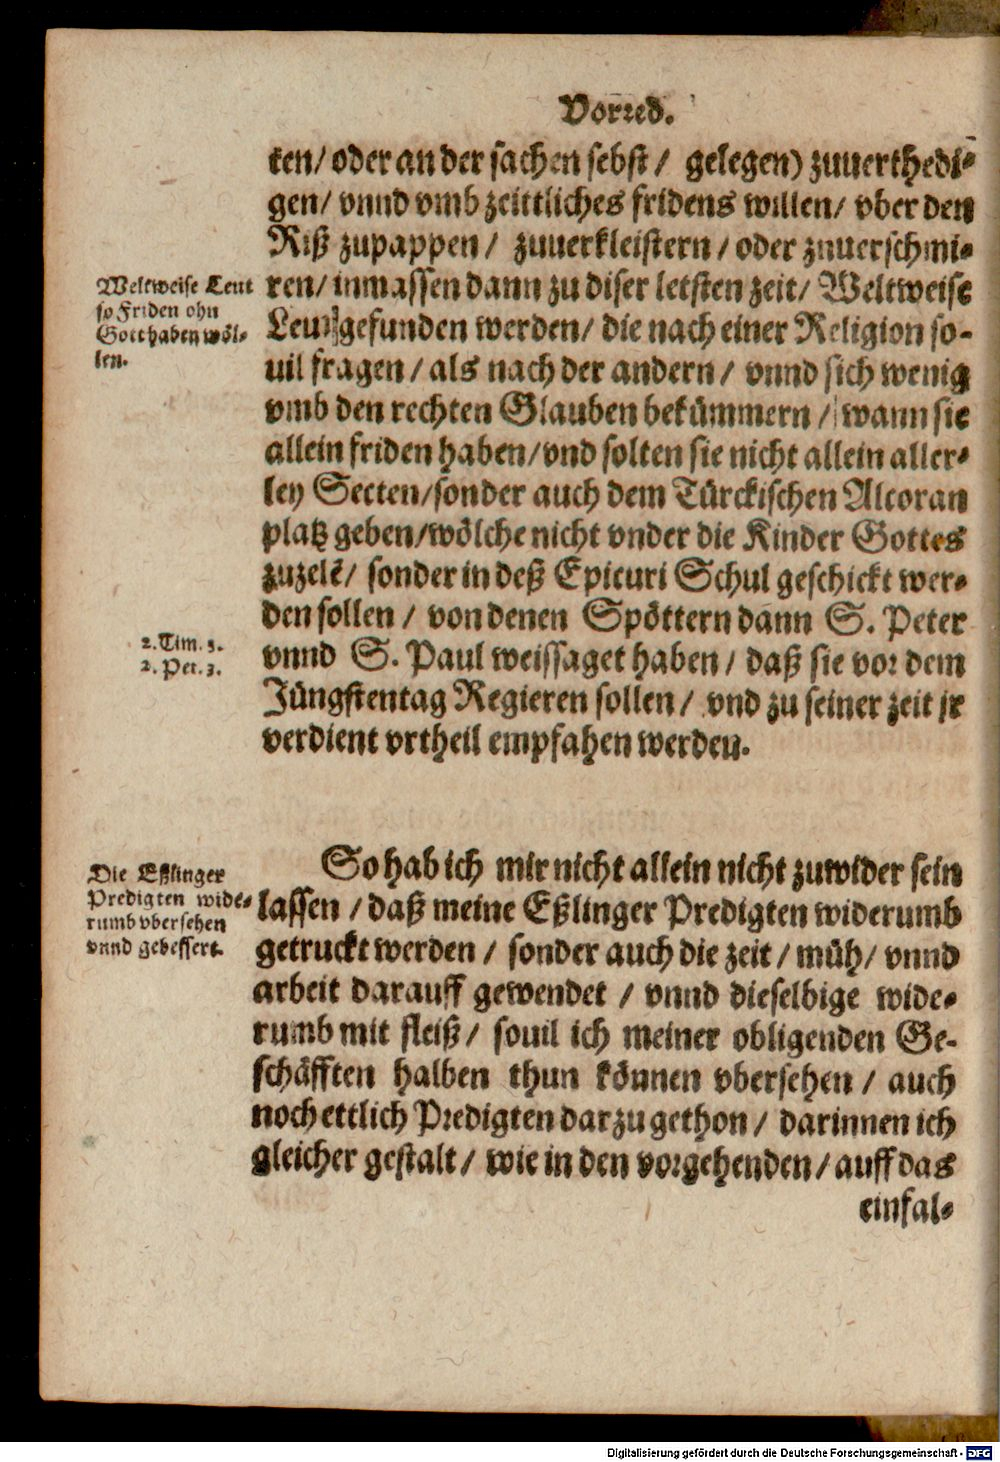 Vorred.
ten/ oder an der sachen sebst/ gelegen) zuuerthedi⸗
gen/ vnnd vmb zeittliches fridens willen/ vber den
Riß zupappen/ zuuerkleistern/ oder zuuerschmi⸗
ren/ inmassen dann zu diser letsten zeit/ Weltweise
Leut gefunden werden/ die nach einer Religion so-
uil fragen/ als nach der andern/ vnnd sich wenig
vmb den rechten Glauben bekümmern/ wann sie
allein friden haben/ vnd solten sie nicht allein aller⸗
ley Secten/ sonder auch dem Türckischen Alcoran
platz geben/ wölche nicht vnder die Kinder Gottes
zuzelē/ sonder in deß Epicuri Schul geschickt wer⸗
den sollen/ von denen Spöttern dann S. Peter
vnnd S. Paul weissaget haben/ daß sie vor dem
Jüngstentag Regieren sollen/ vnd zu seiner zeit jr
verdient vrtheil empfahen werden.
Weltweise Leut
so Friden ohn
Gott haben wöl⸗
len.
2. Tim. 3.
2. Pet. 3.
So hab ich mir nicht allein nicht zuwider sein
lassen/ daß meine Eßlinger Predigten widerumb
getruckt werden/ sonder auch die zeit/ müh/ vnnd
arbeit darauff gewendet/ vnnd dieselbige wide⸗
rumb mit fleiß/ souil ich meiner obligenden Ge-
schäfften halben thun können vbersehen/ auch
noch ettlich Predigten darzu gethon/ darinnen ich
gleicher gestalt/ wie in den vorgehenden/ auff das
einfal⸗
Die Eßlinger
Predigten wide⸗
rumb vbersehen
vnnd gebessert.
Digitalisierung gefördert durch die Deutsche Forschungsgemeinschaft - DFG